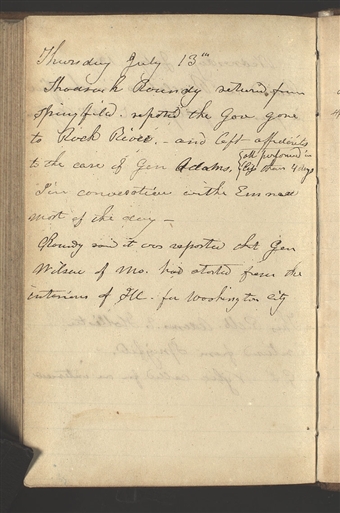 Thursday July 13th
Shadrach Roundy returned from
Springfield. reported the Gov gone
to Rock River. - and left affidavits
to the case of Gen Adams, {all performed in less than 4 days
I in conversation with Emma
most of the day -
Roundy said it was reported that Gen
Wilson of Mo. had started from the
interior of Ill. for Washington city